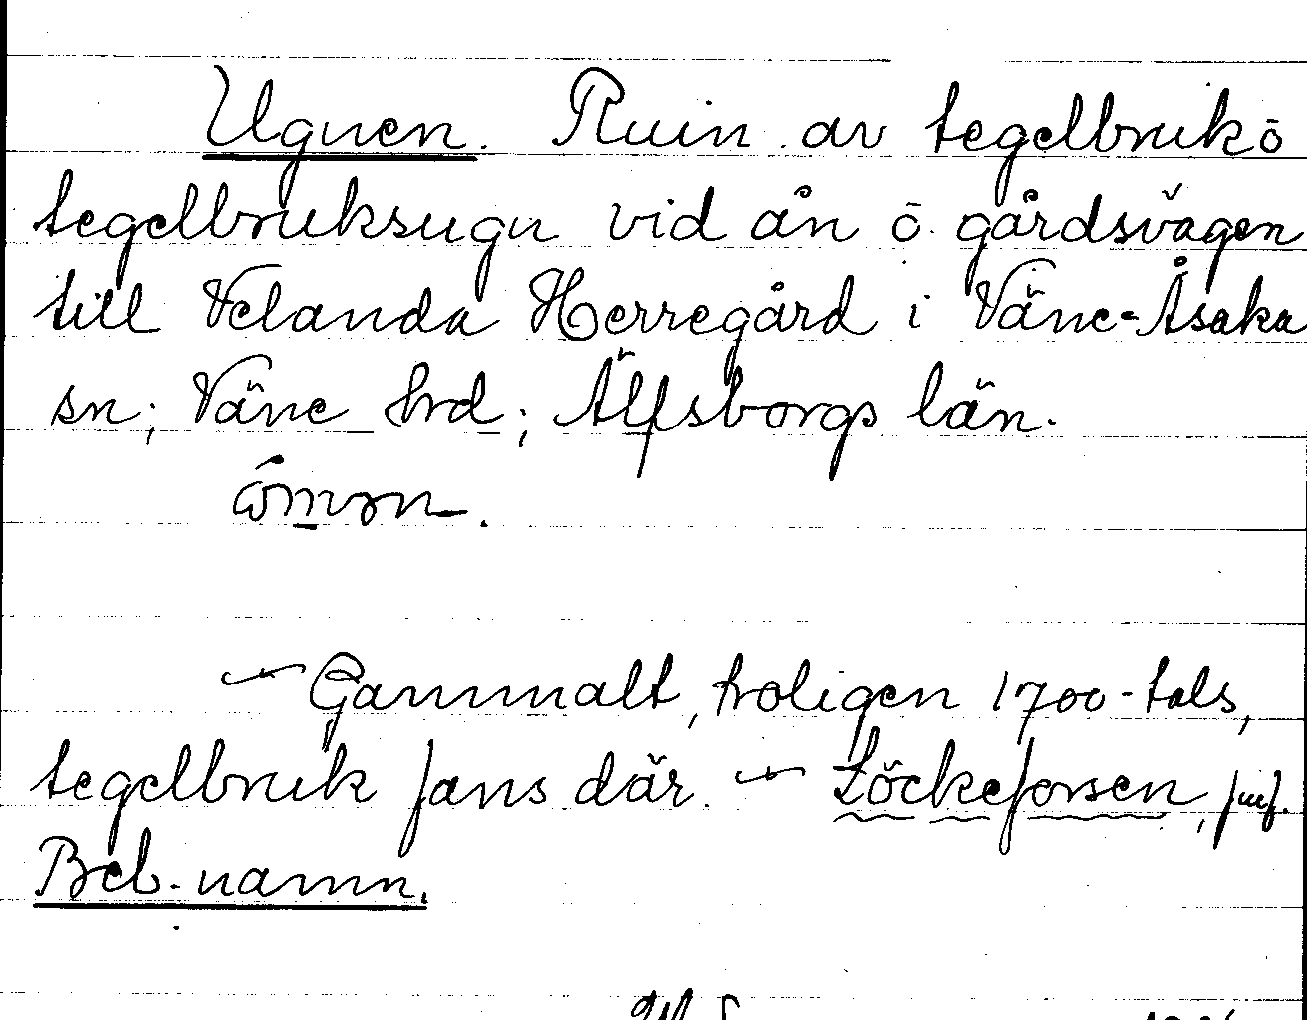 Ugnen. Ruin av tegelbruk ö
tegelbruksugn vid ån ö. gårdsvägen
till Velanda Herregård i Väne-Åsaka
sn; Väne hrd; Älfsborgs län.
— Gammalt, troligen 1700-tals,
tegelbruk fans där. — Löckeforsen, jmf.
Beb.-namn.